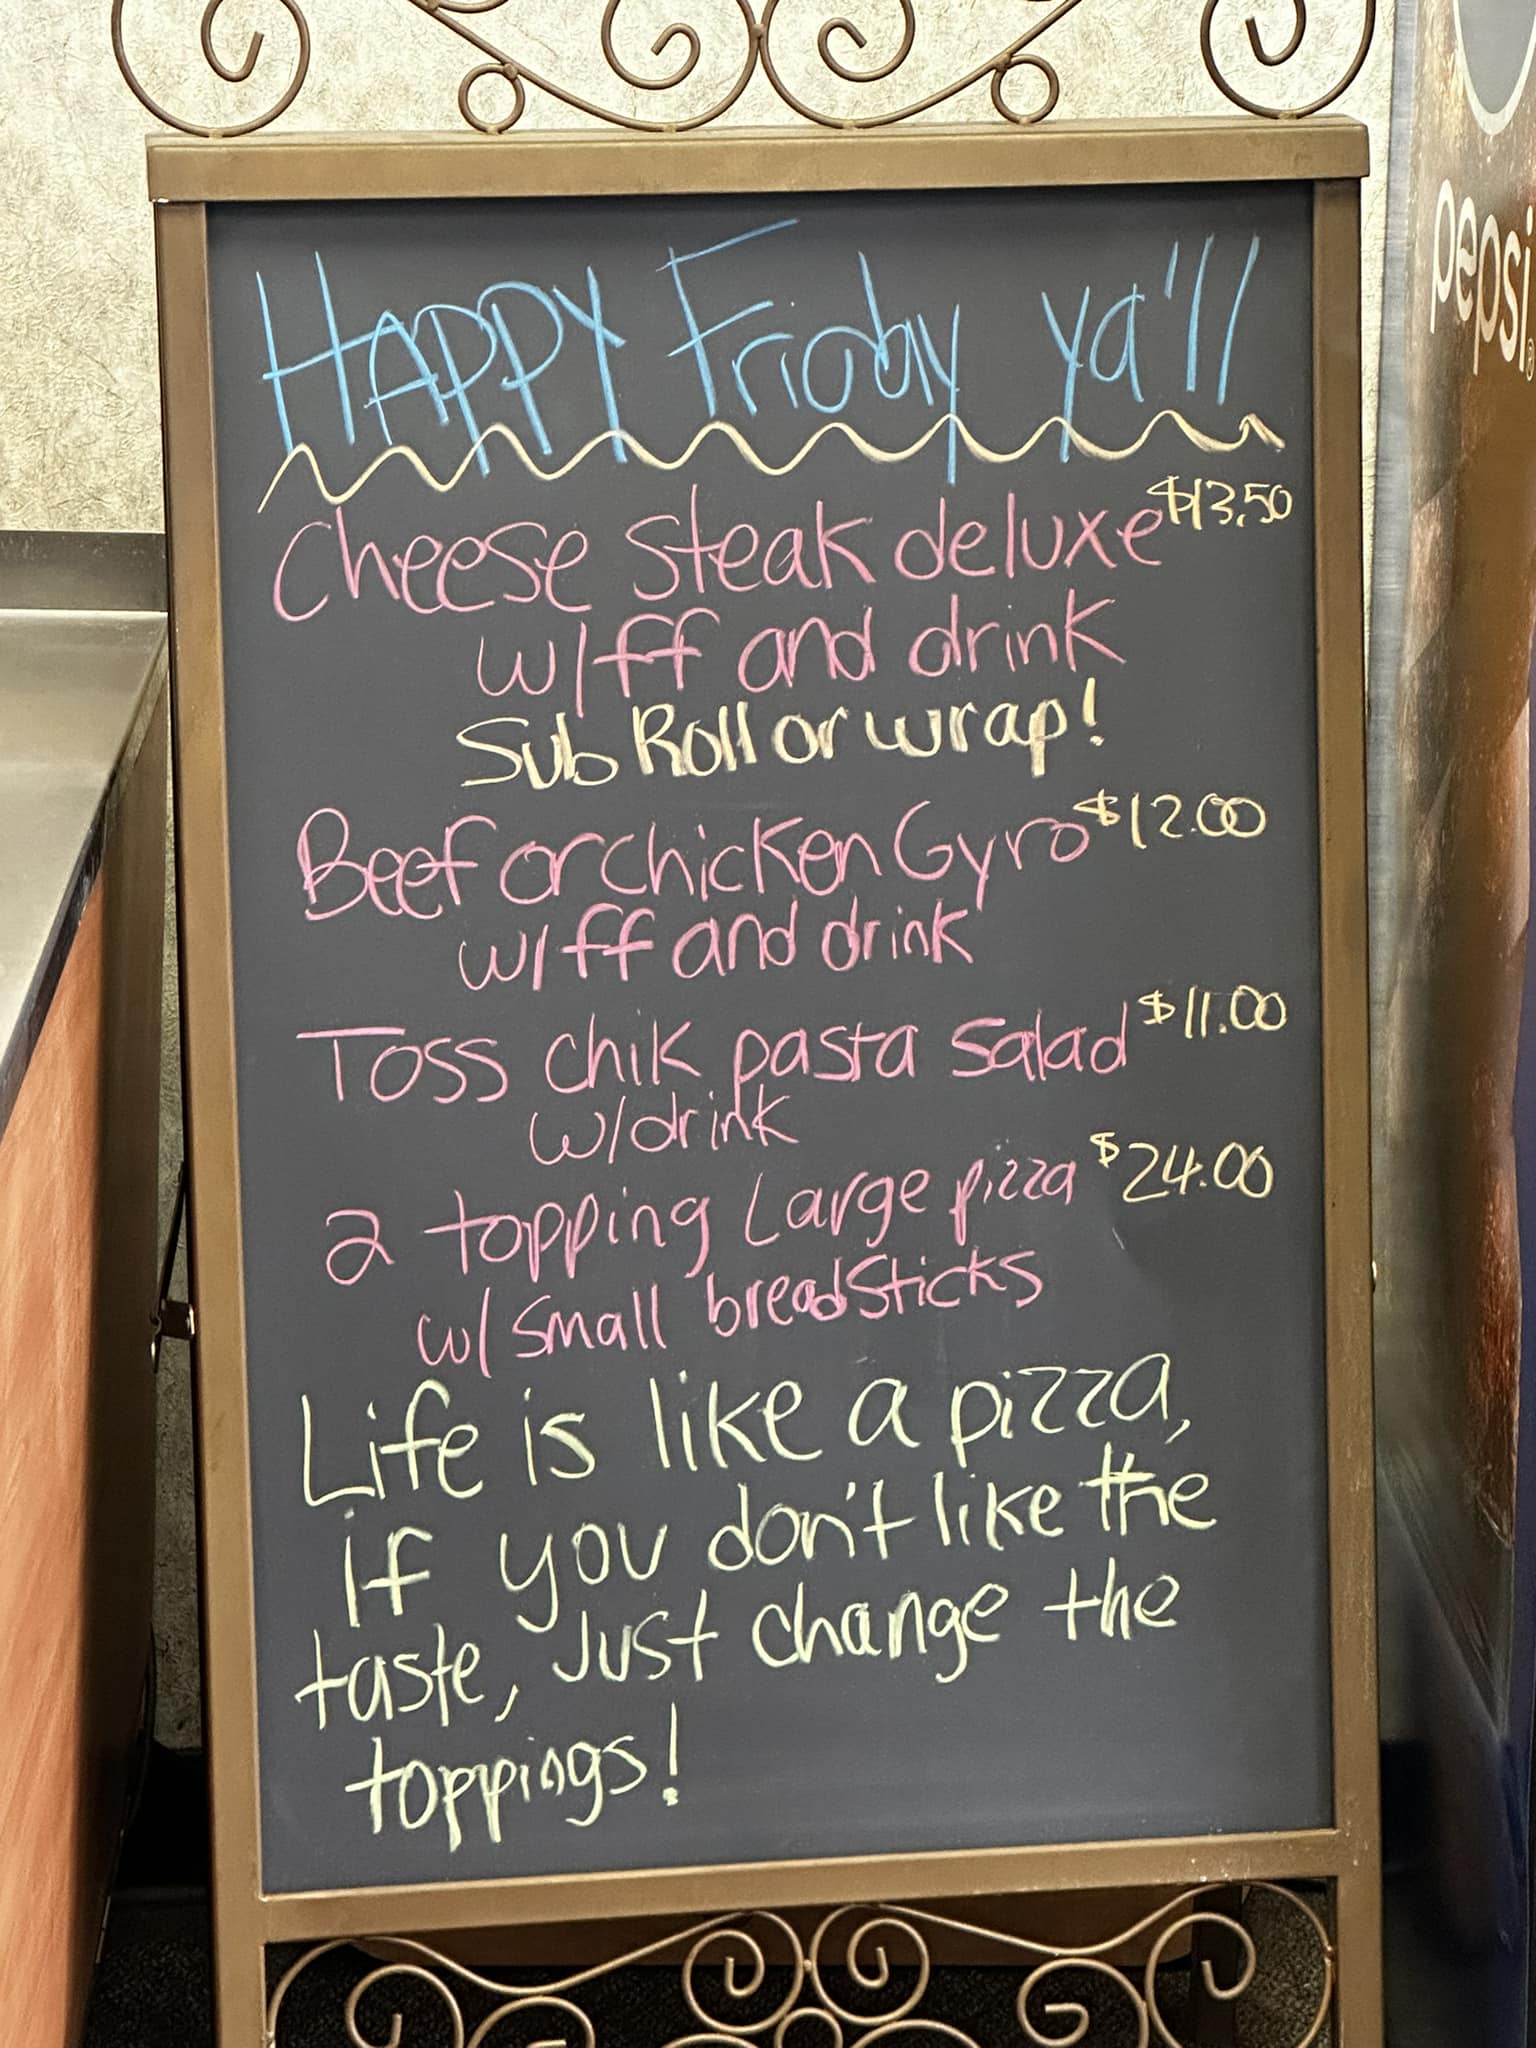 HAPPY Friday ya'll
Cheese steak deluxe $13.50
w/ff and drink
Sub Roll or wrap!
Beef or chicken Gyro $12.00
w/ff and drink
Toss chik pasta salad $11.00
w/drink
2 topping Large pizza $24.00
w/ small breadsticks
Life is like a pizza,
if you don't like the
taste, Just change the
toppings!
pepsi®